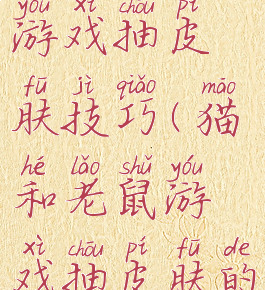 yóu xì chōu pí
游戏抽皮
fū jì qiǎo māo
肤技巧(猫
hé lǎo shǔ yóu
和老鼠游
xì chōu pí fū de
戏抽皮肤的